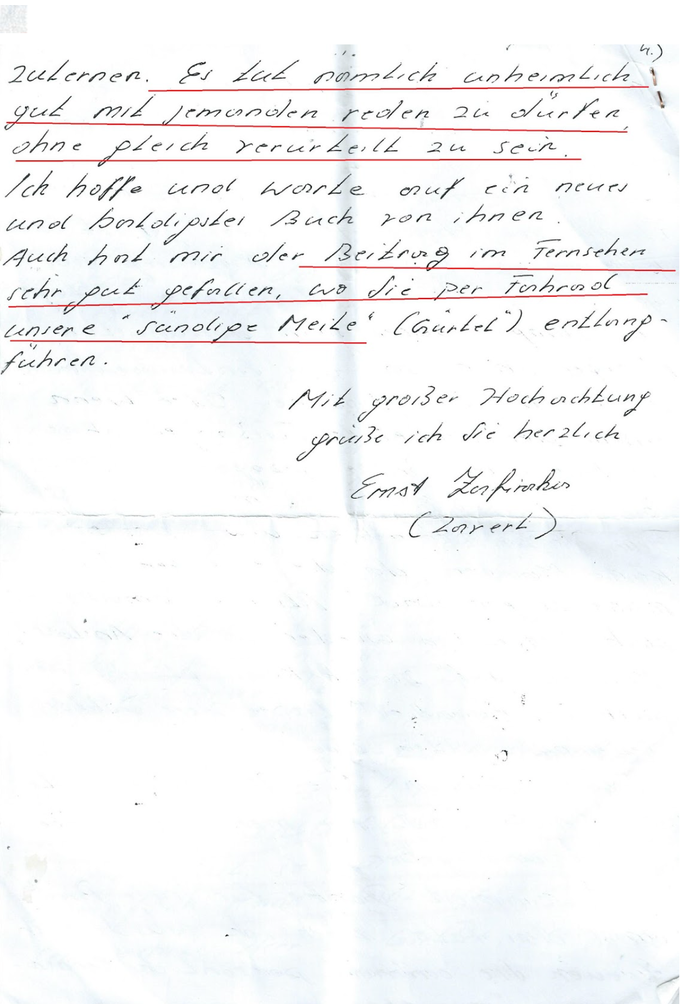 4.)
zulernen. Es tut nämlich unheimlich
gut mit jemanden reden zu dürfen,
ohne gleich verurteilt zu sein.
Ich hoffe und warte auf ein neues
und baldigstes Buch von ihnen.
Auch hat mir der Beitrag im Fernsehen
sehr gut gefallen, wo Sie per Fahrad
unsere "sündige Meile" (Gürtel") entlang-
führen.
Mit großer Hochachtung
grüße ich Sie herzlich
Ernst